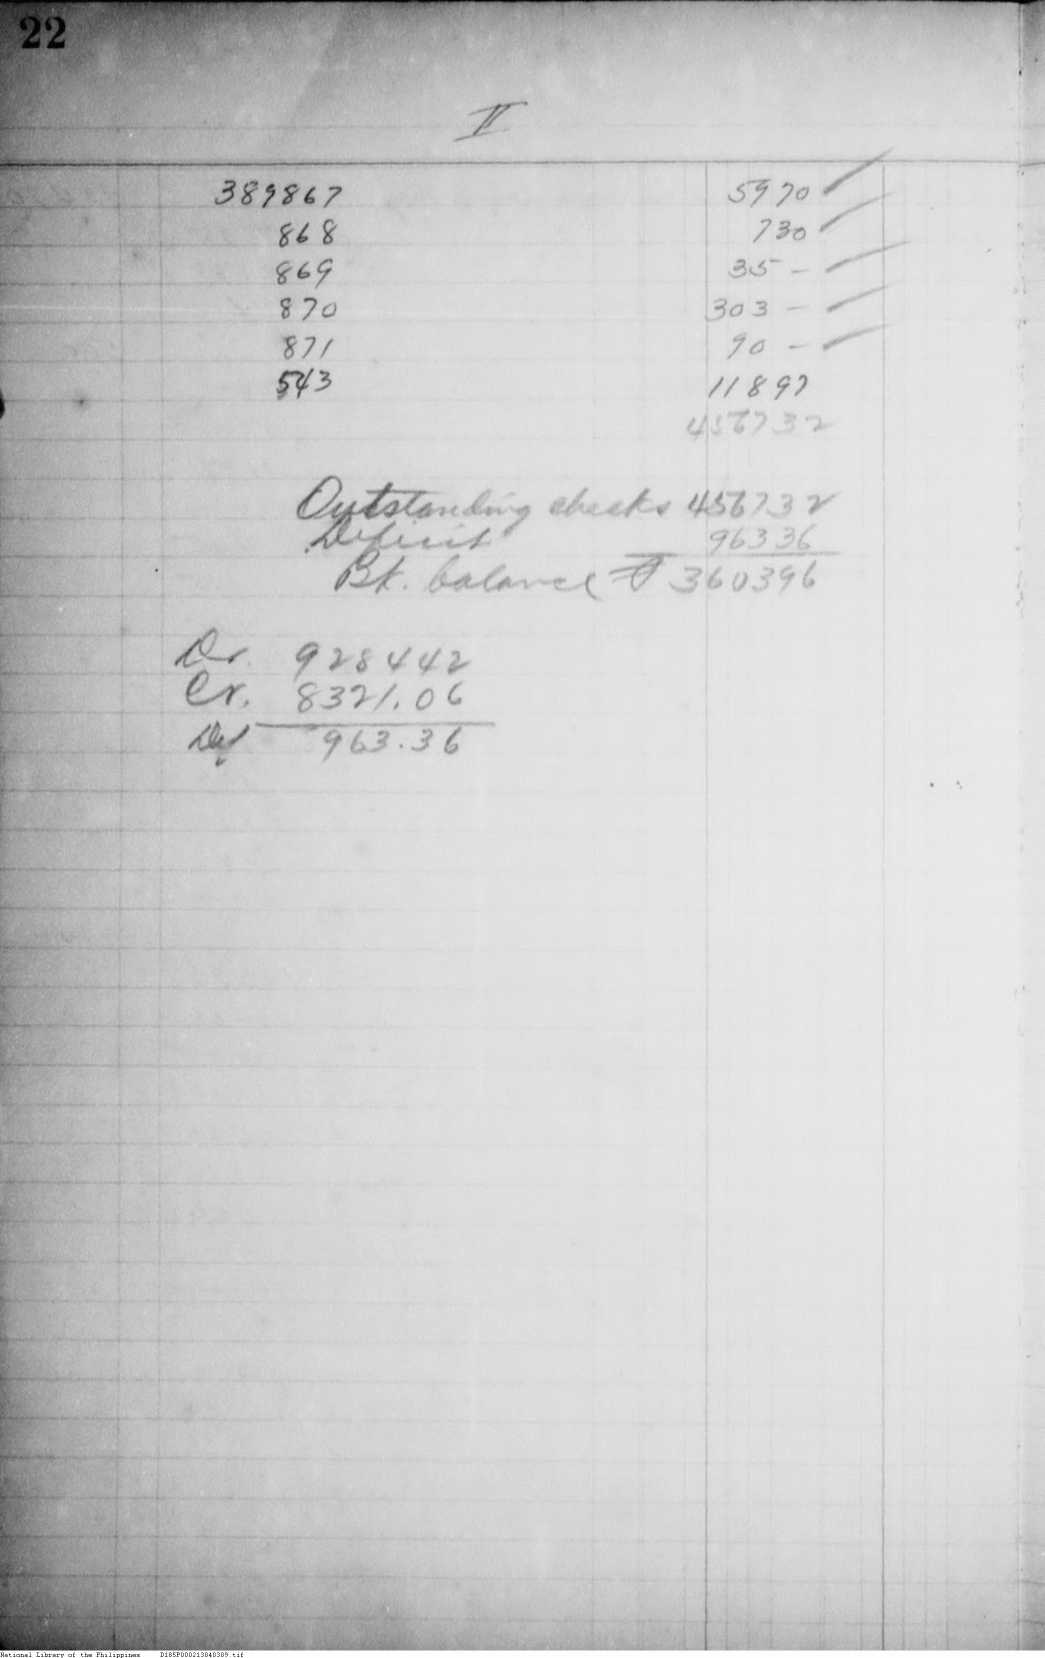 22
II
389867 5970
868 730
869 35 -
870 303 -
871 90 -
543 11897
456732
Outstanding checks 456732
Deficit 96336
Bk. balance ₱ 360396
Dr. 928442
Cr. 8321.06
Def 963.36
National Library of the Philippines D185P000213040309.tif